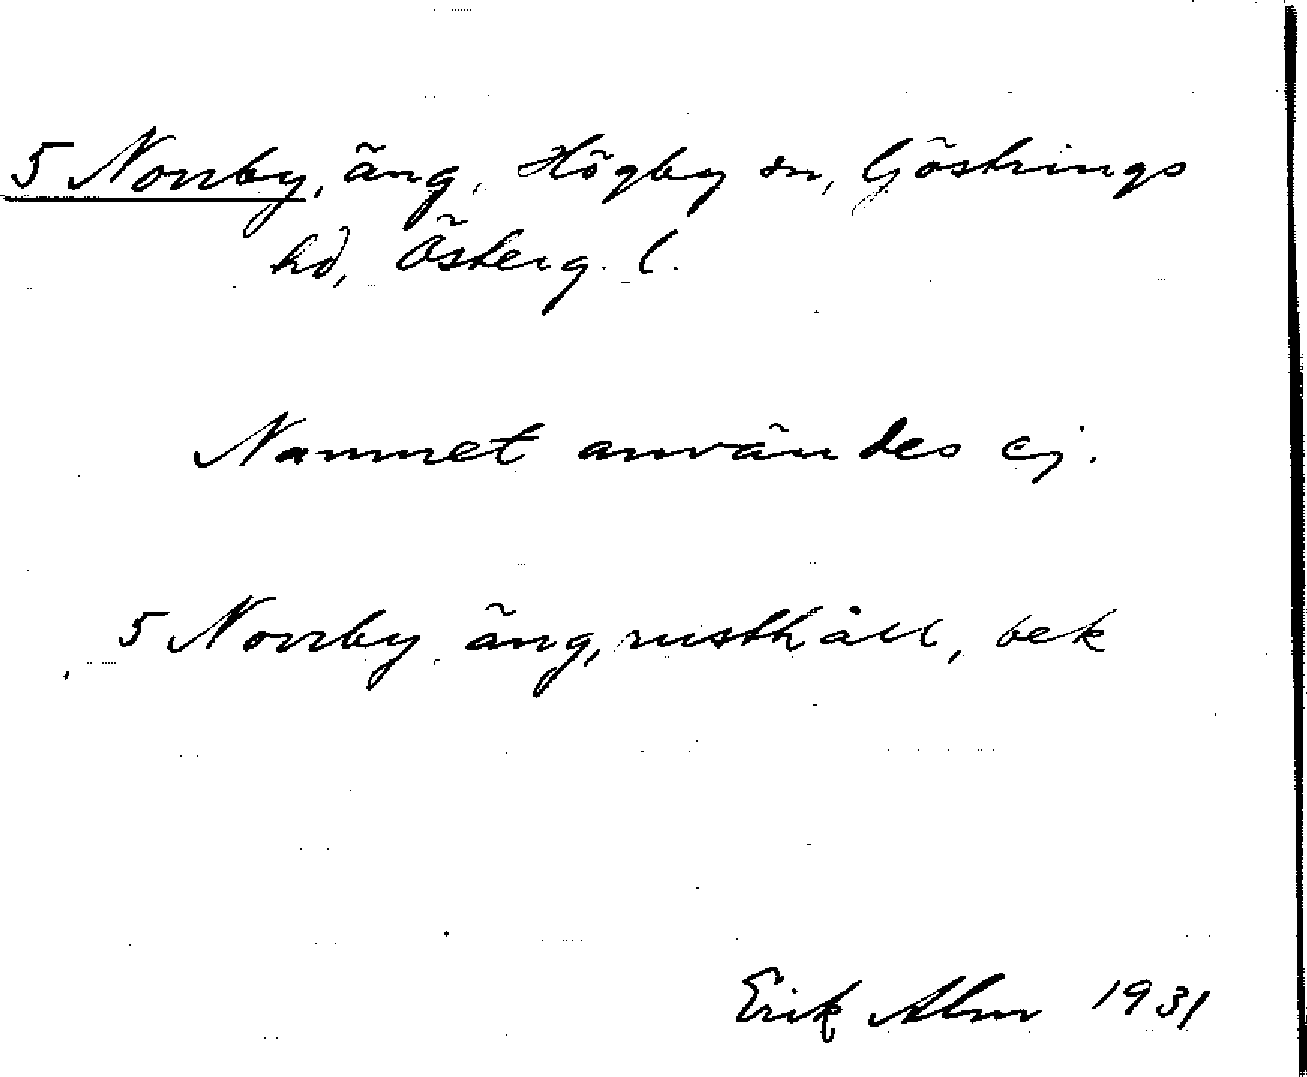 5 Norrby, äng, Högby sn, Göstrings
hd, Österg. l.
Namnet användes ej.
5 Norrby äng, rusthåll, bek
Erik Alm 1931